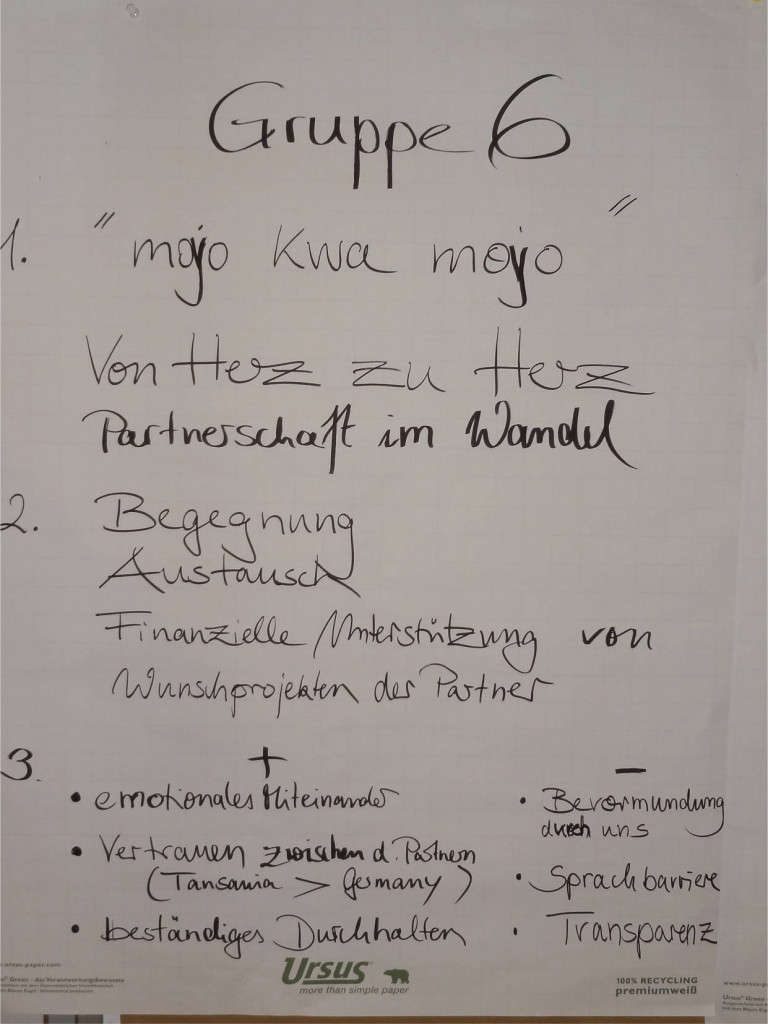 Gruppe 6
1. "mojo kwa moyo"
Von Herz zu Herz
Partnerschaft im Wandel
2. Begegnung
Austausch
Finanzielle / Unterstützung von
Wunschprojekten der Partner
3. + -
• emotionales Miteinander
• Vertrauen zwischen d. Partnern
(Tansania > Germany)
• beständiges Durchhalten
• Bevormundung
durch uns
• Sprachbarriere
• Transparenz
Ursus
more than simple paper
100% RECYCLING
premiumweiß